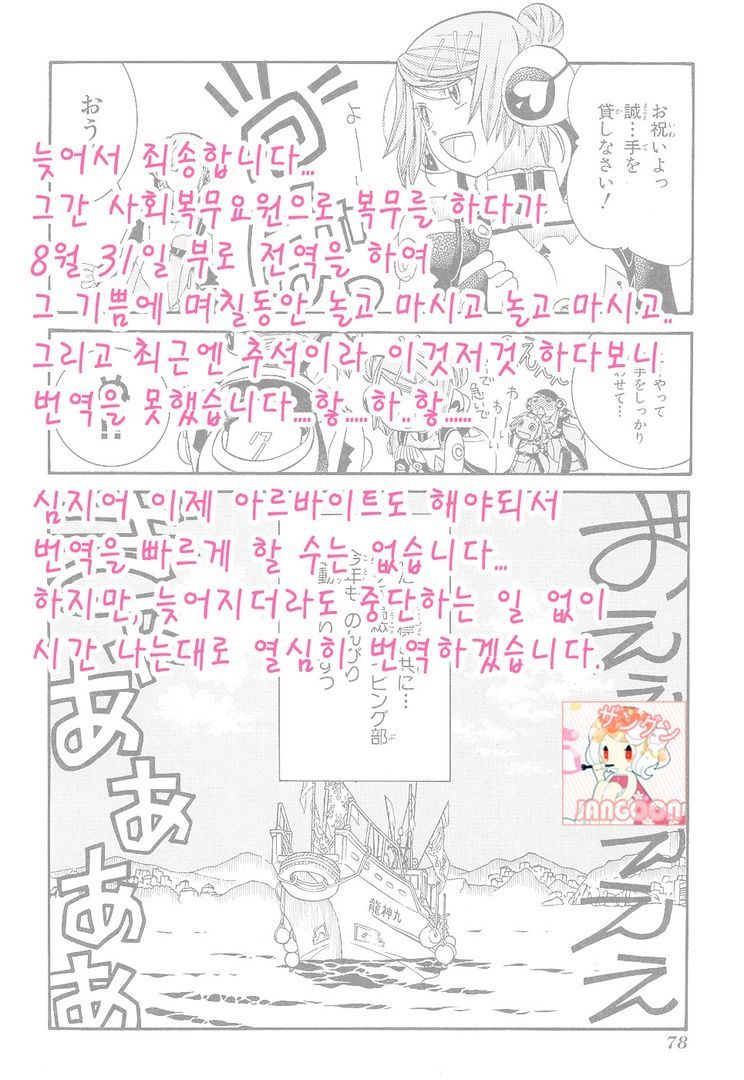 お祝いよっ
誠…手を
貸しなさい!
よー
おう
늦어서 죄송합니다...
그간 사회복무요원으로 복무를 하다가
8월 31일 부로 전역을 하여
그 기쁨에 며칠동안 놀고 마시고 놀고 마시고..
그리고 최근엔 추석이라 이것저것 하다보니
번역을 못했습니다....핳.....하..핳......
심지어 이제 아르바이트도 해야되서
번역을 빠르게 할 수는 없습니다...
하지만, 늦어지더라도 중단하는 일 없이
시간 나는대로 열심히 번역하겠습니다.
手をしっかり
共に…
ビング部
今年ものんびり
ああああ
龍神丸
ザングン
JANGOON
78